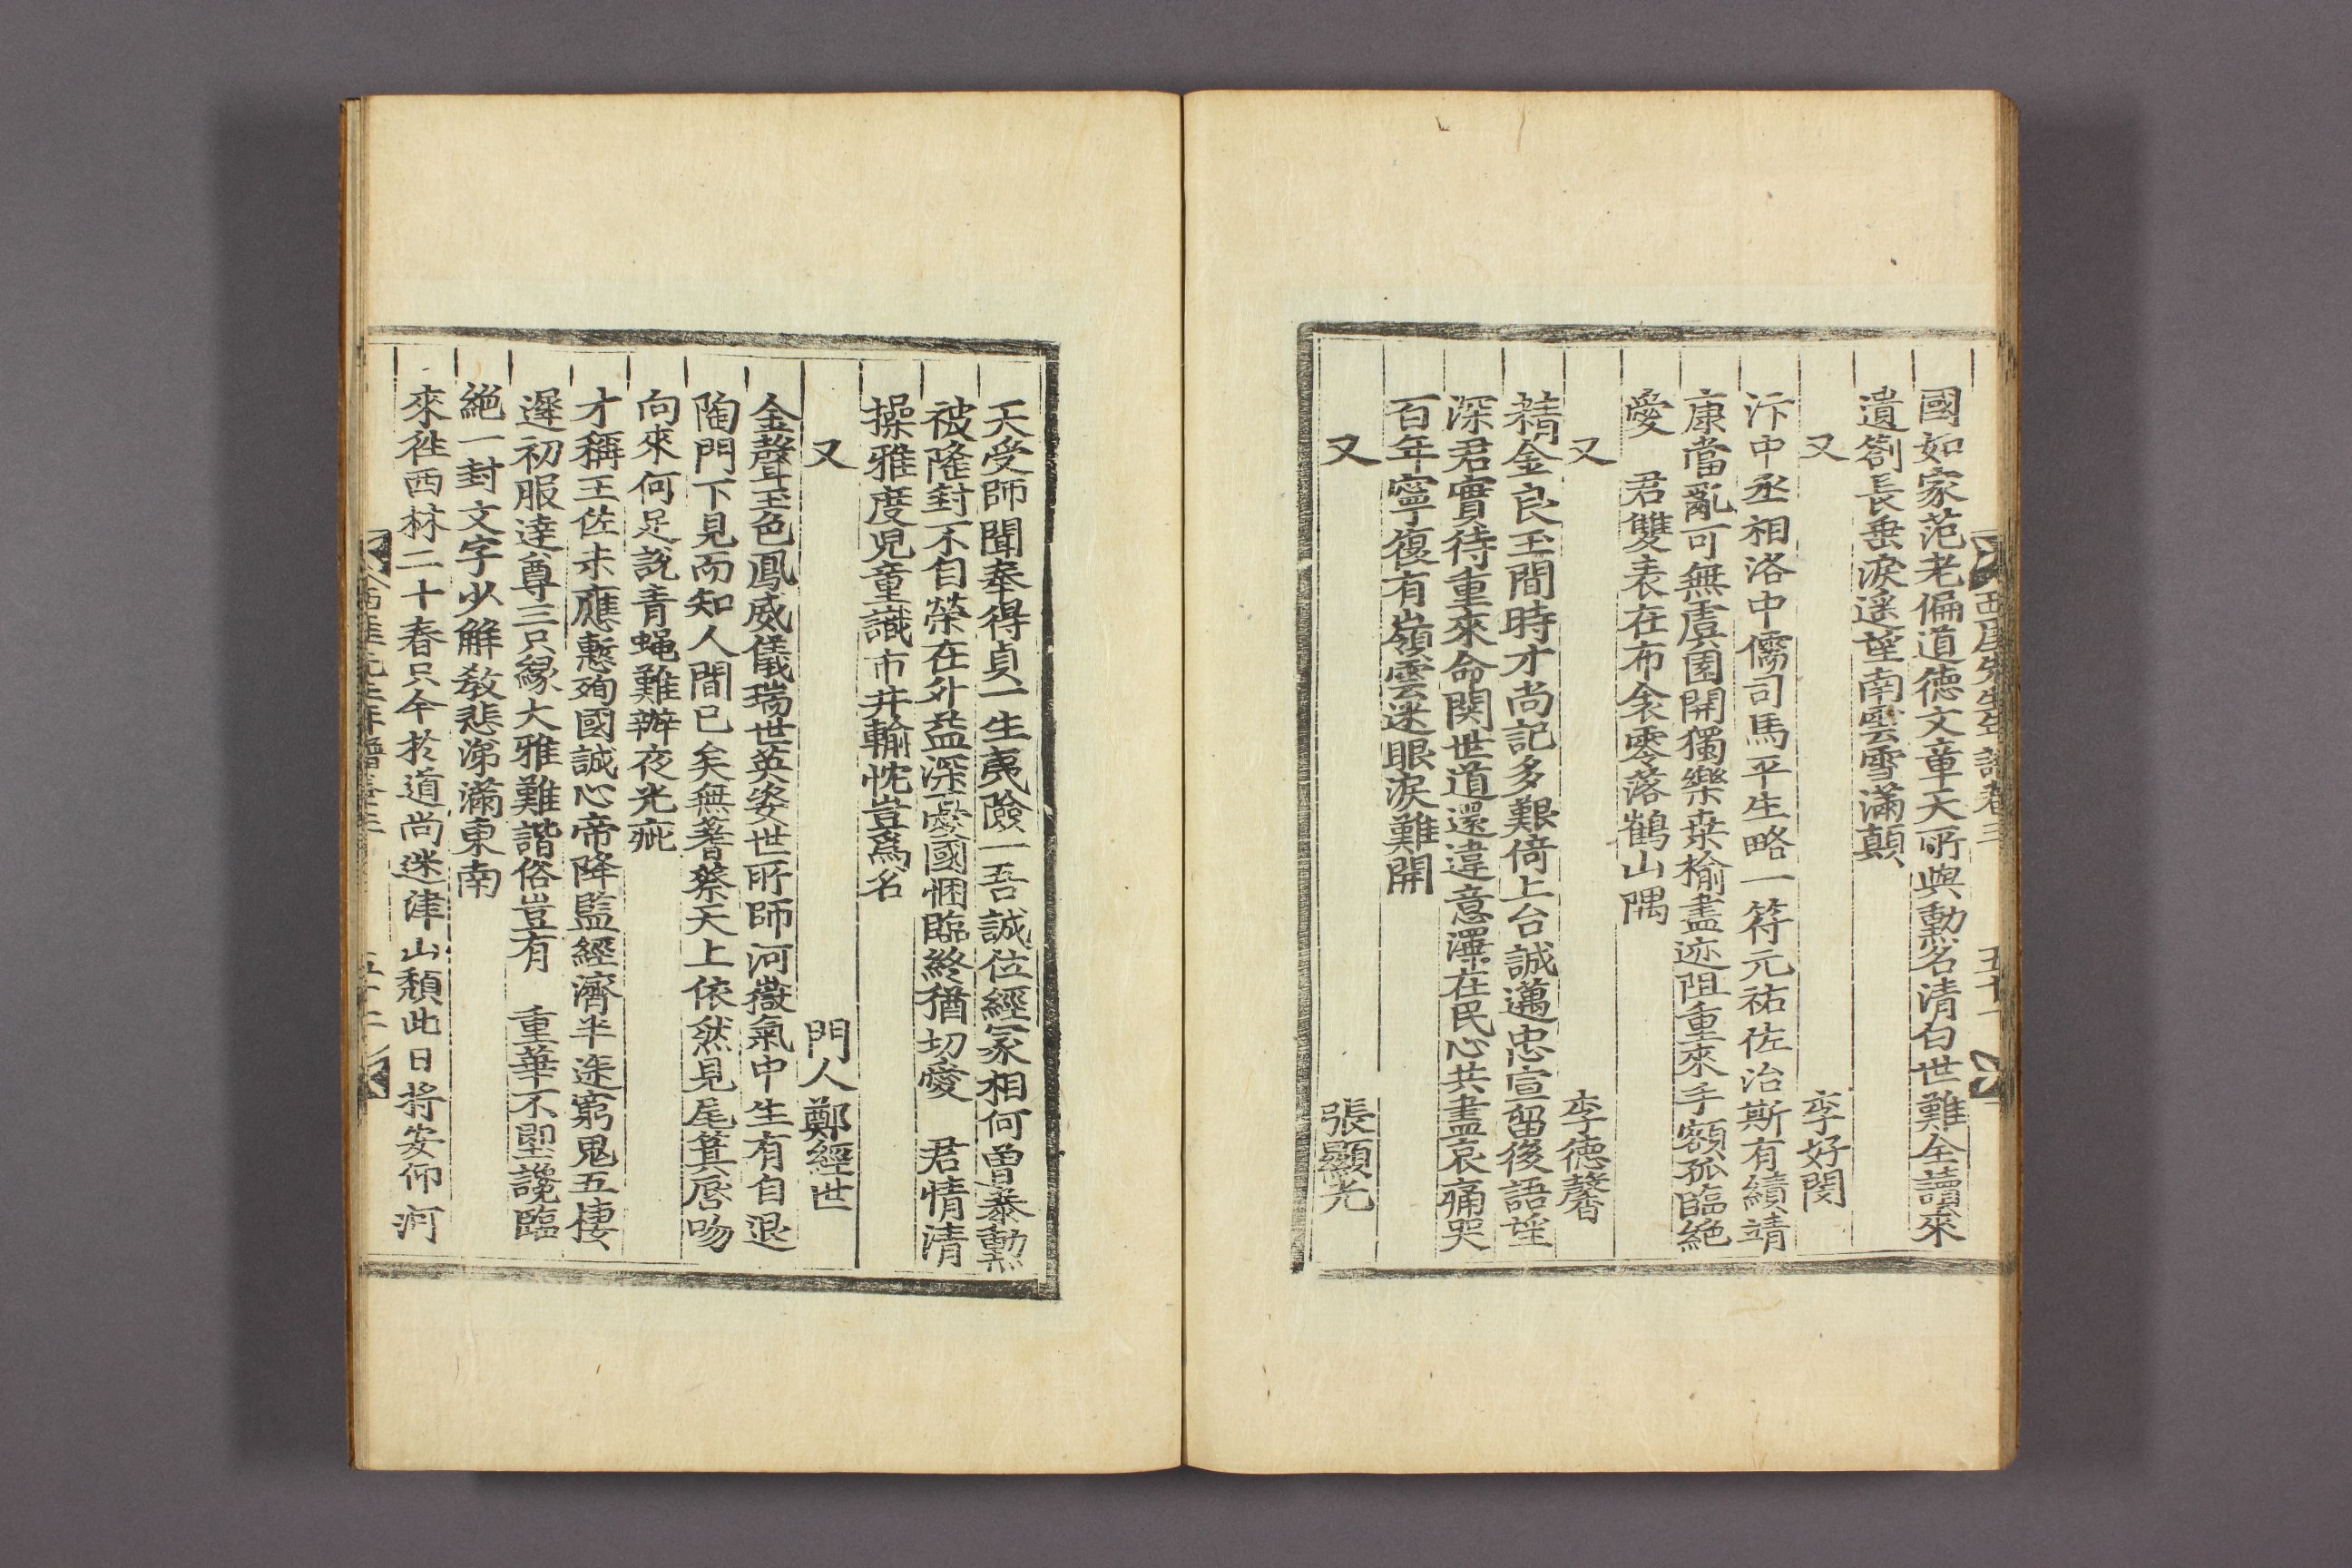 西厓先生年譜卷三 五十一
國如家范老偏道德文章天所與勳名清白世難全讀來
遺劄長垂淚遙望南雲雪滿顛
又 李好閔
汴中丞相洛中儒司馬平生略一符元祐佐治斯有績靖
康當亂可無虞園開獨樂桑榆盡迹阻重來手額孤臨絕
愛 君雙表在布衾零落鶴山隅
又 李德馨
精金良玉間時才尚記多艱倚上台誠邁忠宣留後語望
深君實待重來命関世道還違意澤在民心共盡哀痛哭
百年寧復有嶺雲迷眼淚難開
又 張顯光
天受師聞奉得貞一生夷險一吾誠位經冢相何曾泰勳
被隆封不自榮在外益深憂國悃臨終猶切愛 君情清
操雅度兒童識市井輸忱豈爲名
又 門人鄭經世
金聲玉色鳳威儀瑞世英姿世所師河嶽氣中生有自退
陶門下見而知人間已矣無蓍蔡天上依然見尾箕唇吻
向來何足說青蝇難辦夜光疵
才稱王佐未應慙殉國誠心帝降監經濟半途窮鬼五棲
遲初服達尊三只緣大雅難諧俗豈有 重華不堲讒臨
絕一封文字少解敎悲涕滿東南
來徃西林二十春只今於道尚迷津山頹此日將安仰河
西厓先生年譜卷三 五十二